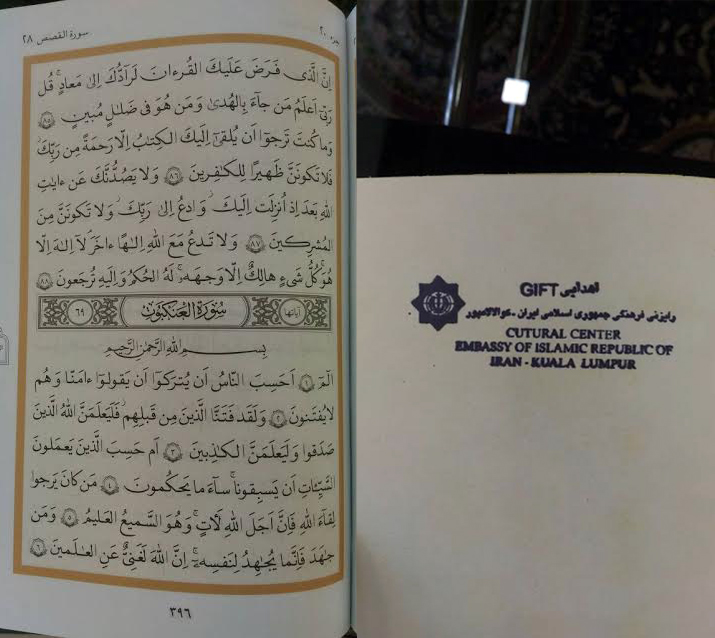 سورة القصص ٢٨
جزء ٢٠
إِنَّ الَّذِى فَرَضَ عَلَيكَ القُرءانَ لَرادُّكَ إِلىٰ مَعادٍ ۚ قُل
رَبّى أَعلَمُ مَن جاءَ بِالهُدىٰ وَمَن هُوَ فى ضَلٰلٍ مُبينٍ ﴿٨٥﴾
وَما كُنتَ تَرجوا أَن يُلقىٰ إِلَيكَ الكِتٰبُ إِلّا رَحمَةً مِن رَبِّكَ ۖ
فَلا تَكونَنَّ ظَهيرًا لِلكٰفِرينَ ﴿٨٦﴾ وَلا يَصُدُّنَّكَ عَن ءايٰتِ
اللهِ بَعدَ إِذ أُنزِلَت إِلَيكَ ۖ وَادعُ إِلىٰ رَبِّكَ ۖ وَلا تَكونَنَّ مِنَ
المُشرِكينَ ﴿٨٧﴾ وَلا تَدعُ مَعَ اللهِ إِلٰهًا ءاخَرَ ۘ لا إِلٰهَ إِلّا
هُوَ ۚ كُلُّ شَىءٍ هالِكٌ إِلّا وَجهَهُ ۚ لَهُ الحُكمُ وَإِلَيهِ تُرجَعونَ ﴿٨٨﴾
سُورَةُ العَنكَبوتِ آياتها ٦٩
بِسمِ اللهِ الرَّحمٰنِ الرَّحيمِ
الم ﴿١﴾ أَحَسِبَ النّاسُ أَن يُترَكوا أَن يَقولوا ءامَنّا وَهُم
لا يُفتَنونَ ﴿٢﴾ وَلَقَد فَتَنَّا الَّذينَ مِن قَبلِهِم ۖ فَلَيَعلَمَنَّ اللهُ الَّذينَ
صَدَقوا وَلَيَعلَمَنَّ الكٰذِبينَ ﴿٣﴾ أَم حَسِبَ الَّذينَ يَعمَلونَ
السَّيِّـٔاتِ أَن يَسبِقونا ۚ ساءَ ما يَحكُمونَ ﴿٤﴾ مَن كانَ يَرجوا
لِقاءَ اللهِ فَإِنَّ أَجَلَ اللهِ لَـٔاتٍ ۚ وَهُوَ السَّميعُ العَليمُ ﴿٥﴾ وَمَن
جٰهَدَ فَإِنَّما يُجٰهِدُ لِنَفسِهِ ۚ إِنَّ اللهَ لَغَنِىٌّ عَنِ العٰلَمينَ ﴿٦﴾
٣٩٦
اهدایی GIFT
رایزنی فرهنگی جمهوری اسلامی ایران - کوالالامپور
CUTURAL CENTER
EMBASSY OF ISLAMIC REPUBLIC OF
IRAN - KUALA LUMPUR